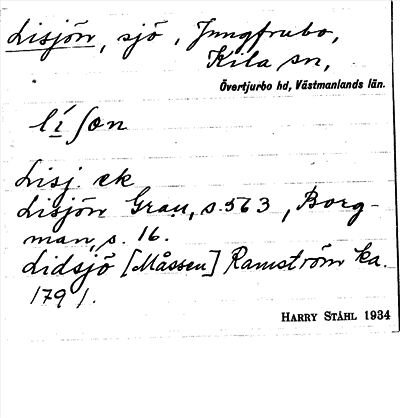 Lisjön, sjö, Jungfrubo,
Kila sn,
Övertjurbo hd, Västmanlands län.
lísøn
Lisj. ek
Lisjön Grau, s. 563, Borg-
man, s. 16.
Lidsjö [Måssen] Ramström ka.
1791.
HARRY STÅHL 1934